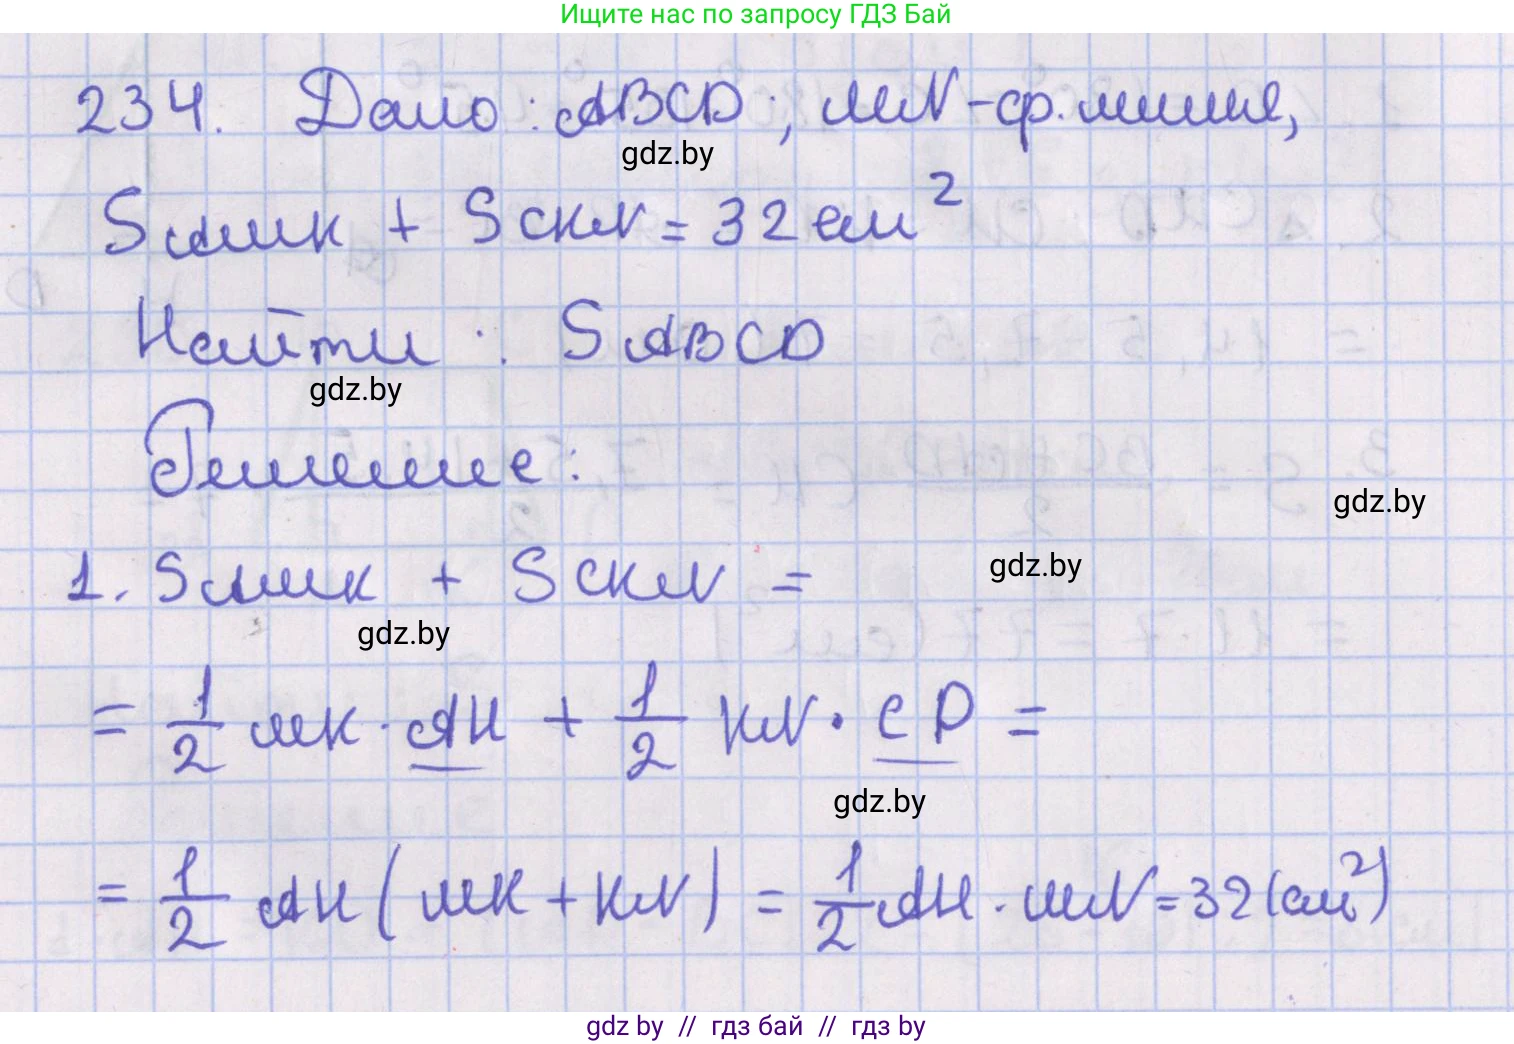 Ищите нас по запросу ГДЗ Бай
234. Дано: ABCD; MN - ср. линия,
gdz.by
SAMK + SCKN = 32 см²
Найти: SABCD
gdz.by
Решение:
gdz.by
1. SAMK + SCKN =
gdz.by
gdz.by
= 1/2 MK · AH + 1/2 KN · CD =
gdz.by
= 1/2 AH (MK + KN) = 1/2 AH · MN = 32 (см²)
gdz by // гдз бай // гдз by